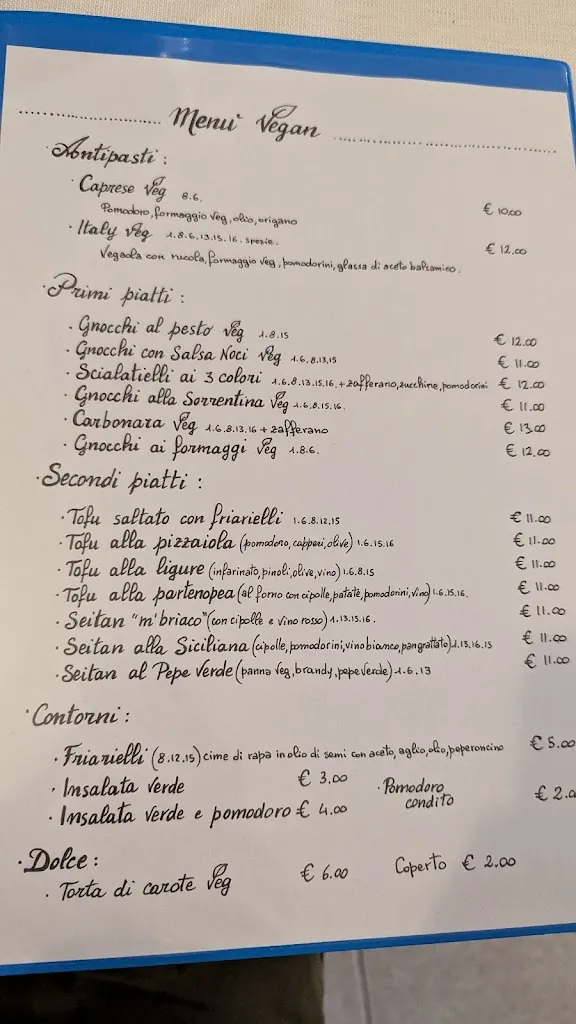 Menu' Vegan
· Antipasti :
· Caprese Veg 8.6. € 10.00
Pomodoro, formaggio Veg, olio, origano
· Italy Veg 1.8.6.13.15.16. spezie. € 12.00
Vegaola con rucola, formaggio Veg, pomodorini, glassa di aceto balsamico.
· Primi piatti :
· Gnocchi al pesto Veg 1.8.15 € 12.00
· Gnocchi con Salsa Noci Veg 1.6.8.13.15 € 11.00
· Scialatielli ai 3 colori 1.6.8.13.15.16. + zafferano, zucchine, pomodorini € 12.00
· Gnocchi alla Sorrentina Veg 1.6.8.15.16. € 11.00
· Carbonara Veg 1.6.8.13.16 + zafferano € 13.00
· Gnocchi ai formaggi Veg 1.8.6. € 12.00
· Secondi piatti :
· Tofu saltato con friarielli 1.6.8.12.15 € 11.00
· Tofu alla pizzaiola (pomodoro, capperi, olive) 1.6.15.16 € 11.00
· Tofu alla ligure (infarinato, pinoli, olive, vino) 1.6.8.15 € 11.00
· Tofu alla partenopea (al forno con cipolle, patate, pomodorini, vino) 1.6.15.16. € 11.00
· Seitan "m'briaco" (con cipolle e vino rosso) 1.13.15.16. € 11.00
· Seitan alla Siciliana (cipolle, pomodorini, vino bianco, pangrattato) 1.13.16.15 € 11.00
· Seitan al Pepe Verde (panna Veg, brandy, pepe verde) 1.6.13 € 11.00
· Contorni :
· Friarielli (8.12.15) cime di rapa in olio di semi con aceto, aglio, olio, peperoncino € 5.00
· Insalata verde € 3.00
· Pomodoro condito € 2.0
· Insalata verde e pomodoro € 4.00
· Dolce :
· Torta di carote Veg € 6.00
Coperto € 2.00